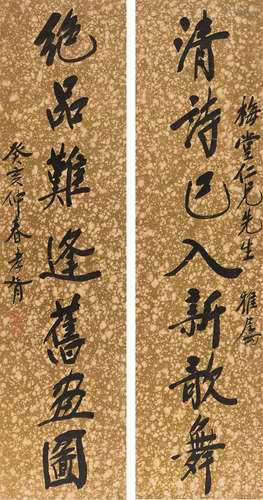 梅堂仁兄先生雅屬
清詩已入新歌舞
絕品難逢舊畫圖
癸亥仲春孝胥